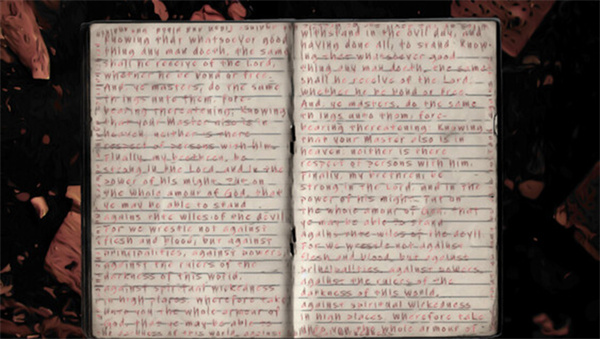 knowing that whatsoever good
thing any man doeth, the same
shall he receive of the Lord,
whether he be bond or free.
And, ye masters, do the same
things unto them, fore-
bearing threatening: knowing
that your Master also is in
heaven neither is there
respect of persons with him.
Finally, my brethren, be
strong in the Lord, and in the
power of his might. Put on
the whole amour of God, that
ye may be able to stand
against the wiles of the devil
For we wrestle not against
flesh and blood, but against
principalities, against powers,
against the rulers of the
darkness of this world,
against spiritual wickedness
in high places. Wherefore take
unto you the whole armour of
God, that ye may be able to
withstand in the evil day, and
having done all, to stand. Know-
ing that whatsoever good
thing any man doeth, the same
shall he receive of the Lord,
whether he be bond or free.
And, ye masters, do the same
things unto them, fore-
bearing threatening: Knowing
that your Master also is in
heaven neither is there
respect of persons with him.
Finally, my brethren, be
strong in the Lord, and in the
power of his might. Put on
the whole amour of God, that
ye may be able to stand
against the wiles of the devil
For we wrestle not against
flesh and blood, but against
principalities, against powers,
against the rulers of the
darkness of this world,
against spiritual wickedness
in high places. Wherefore take
the whole armour of